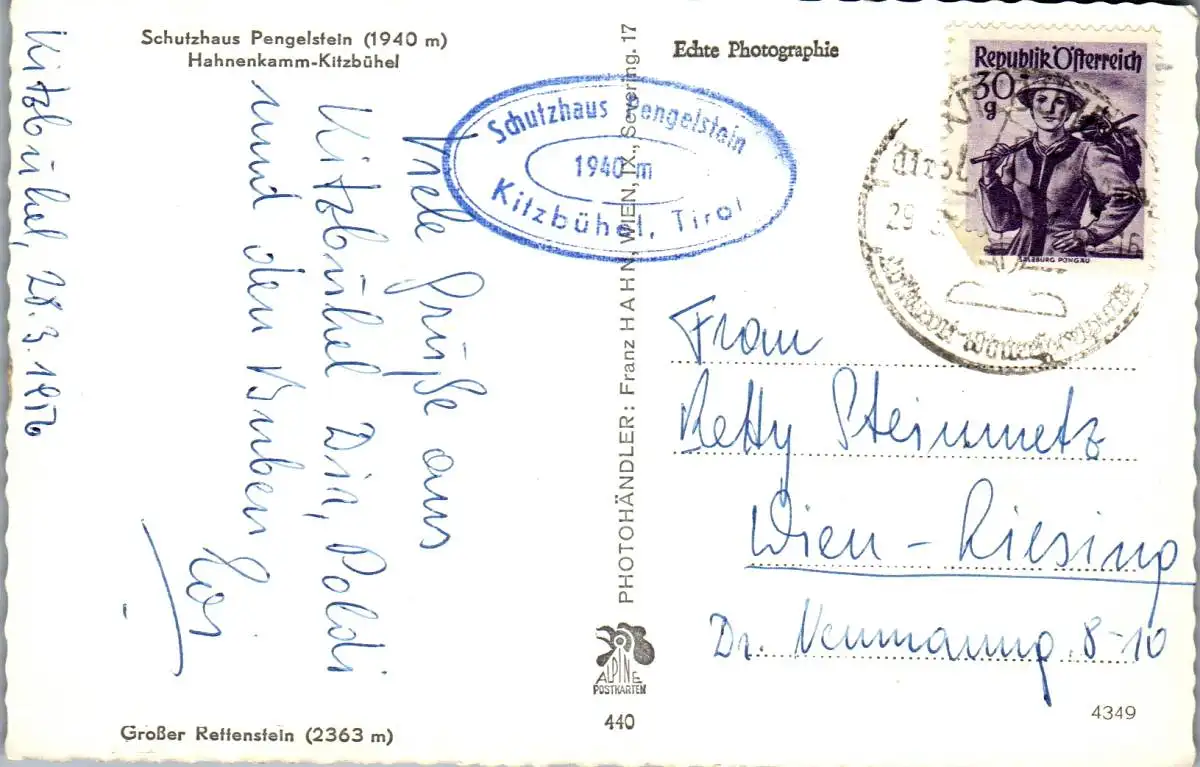 Schutzhaus Pengelstein (1940 m)
Hahnenkamm-Kitzbühel
Kitzbühel, 28.3.1956
Viele Grüße aus
Kitzbühel Dir, Poldi
und den Buben
Großer Rettenstein (2363 m)
Schutzhaus Pengelstein
1940 m
Kitzbühel, Tirol
PHOTOHÄNDLER: Franz HAHN, WIEN, IX., Severing. 17
ALPINE
POSTKARTEN
440
Echte Photographie
Republik Österreich
30
g
SALZBURG PONGAU
29
Frau
Betty Steinmetz
Wien - Liesing
Dr. Neumanng. 8-10
4349